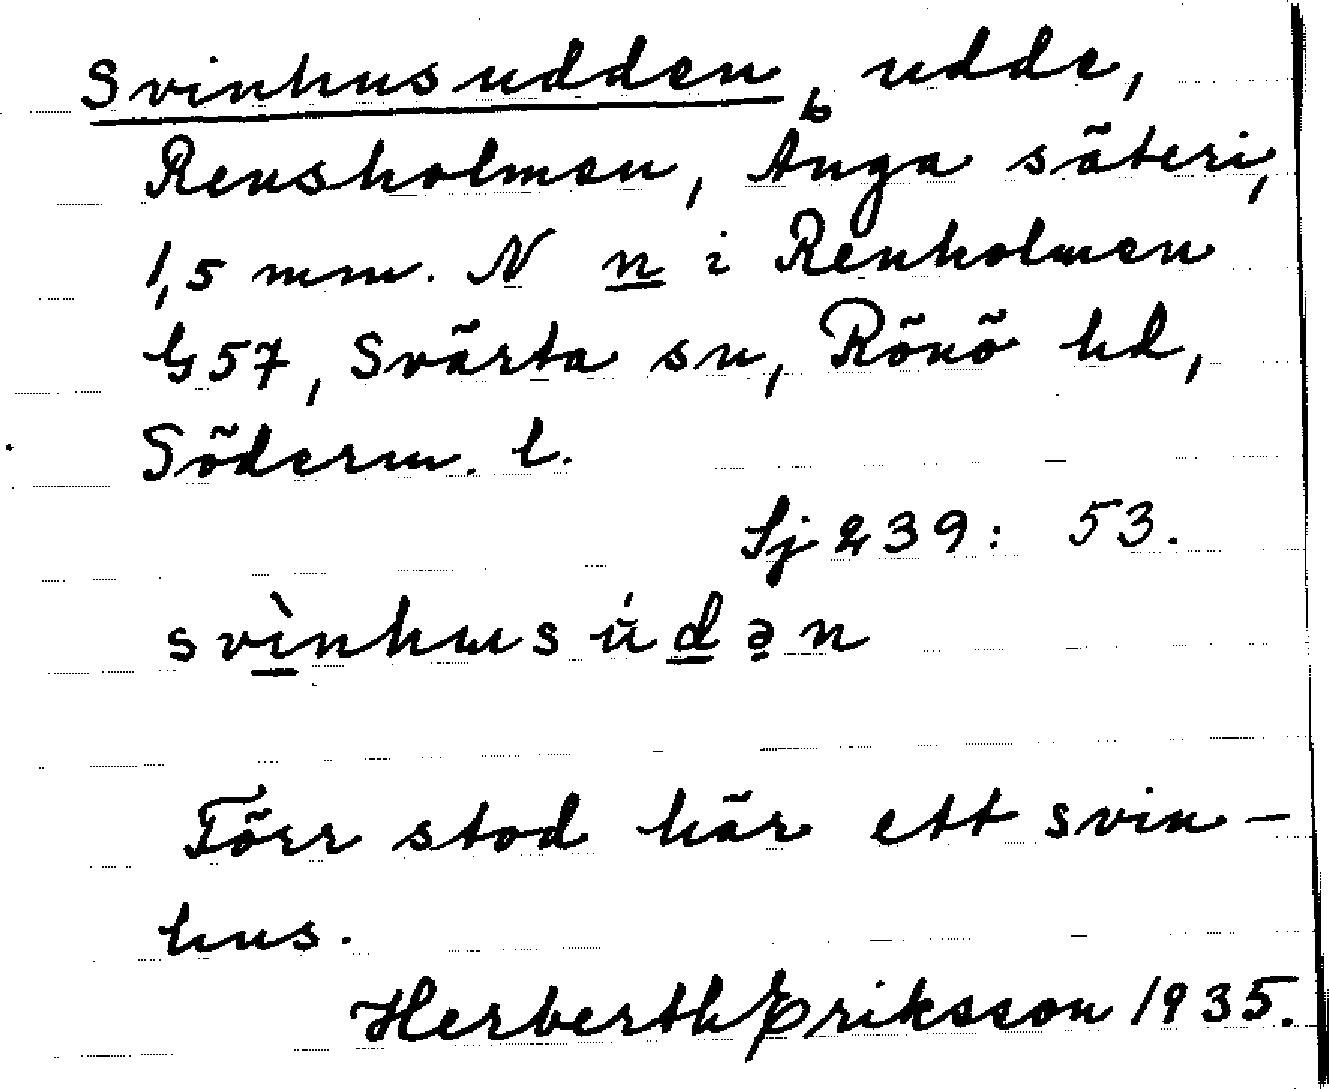 Svinhusudden, udde,
Rensholmen, Ånga säteri,
1,5 mm. N n i Renholmen
G 57, Svärta sn, Rönö hd,
Söderm. l.
Sj 239: 53.
svìnhusúdən
Förr stod här ett svin-
hus.
Herberth Eriksson 1935.